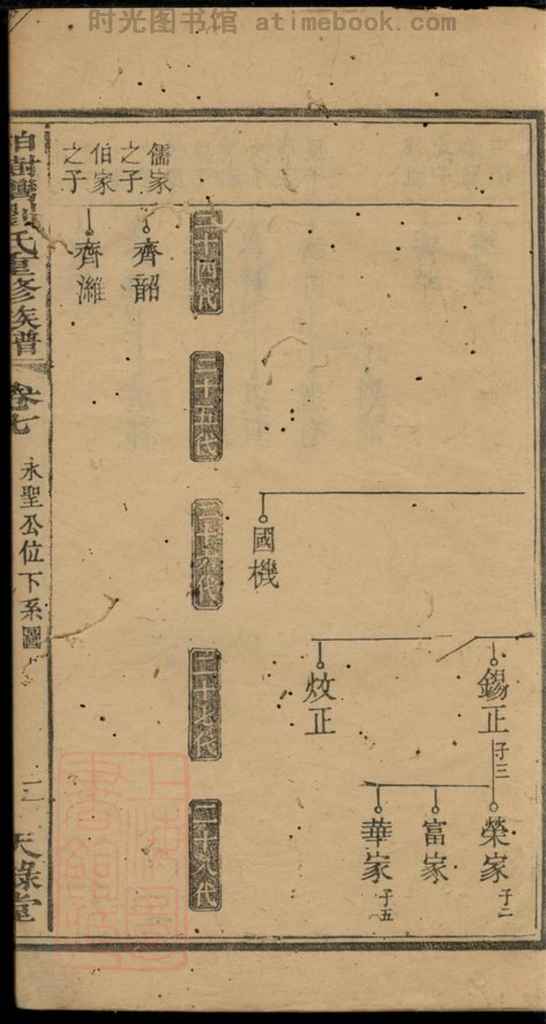 时光图书馆 © atimebook.com
錫正 子三
炆正
榮家 子二
富家
華家 子五
國機
二十四代
二十五代
二十六代
二十七代
二十八代
儒家
之子
伯家
之子
齊韶
齊濰
氏重修族譜
卷七
永聖公位下系圖
天祿堂